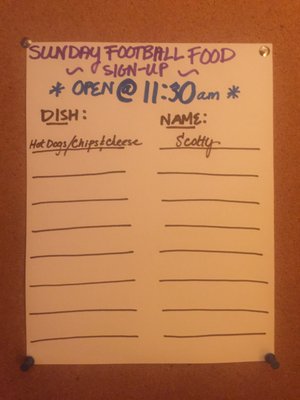 SUNDAY FOOTBALL FOOD
~ SIGN-UP ~
* OPEN @ 11:30am *
DISH: NAME:
Hot Dogs/Chips&cheese Scotty